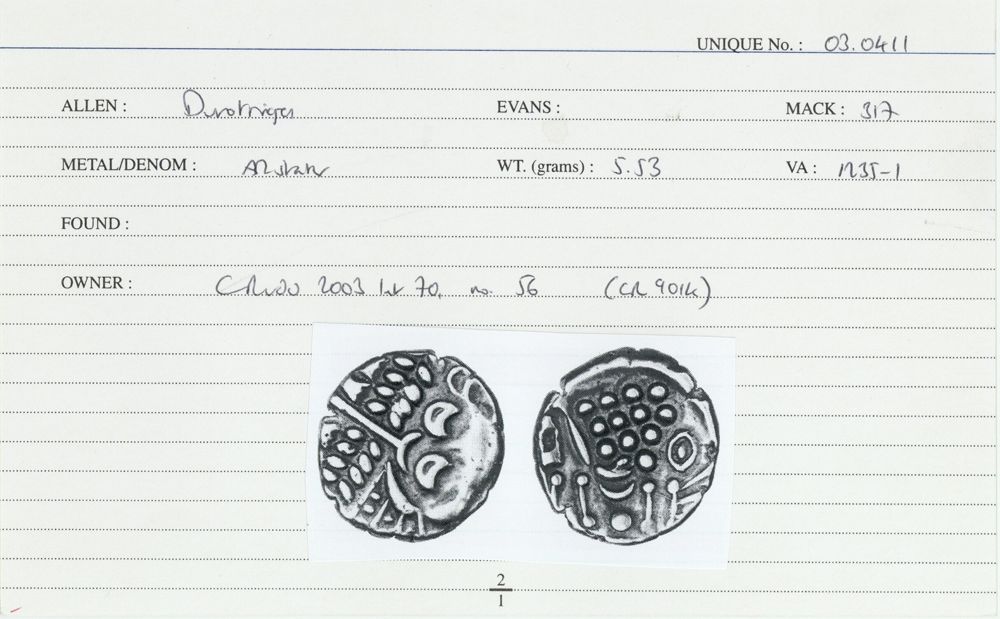 UNIQUE No. : 03.0411
ALLEN : Durotriges EVANS : MACK : 317
METAL/DENOM : AR stater WT. (grams) : 5.53 VA : 1235-1
FOUND :
OWNER : 2003 list 70, no. 56 (CR 901k)
2
1